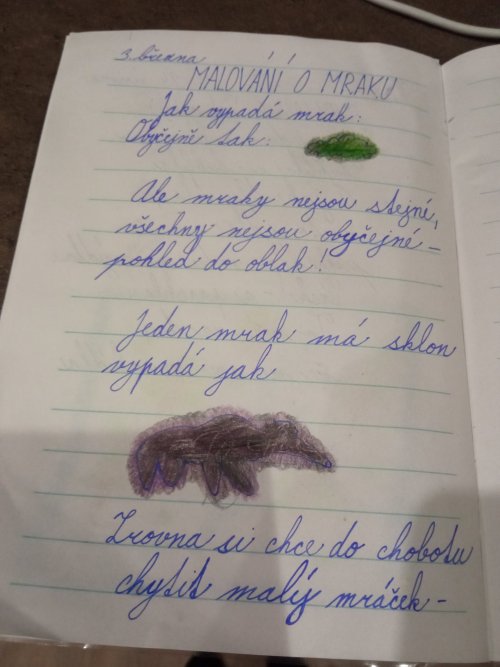 3. března
MALOVÁNÍ O MRAKU
Jak vypadá mrak:
Obyčejně tak:
Ale mraky nejsou stejné,
všechny nejsou obyčejné –
pohled do oblak!
Jeden mrak má sklon
vypadá jak
Zrovna si chce do chobotu
chytit malý mráček –